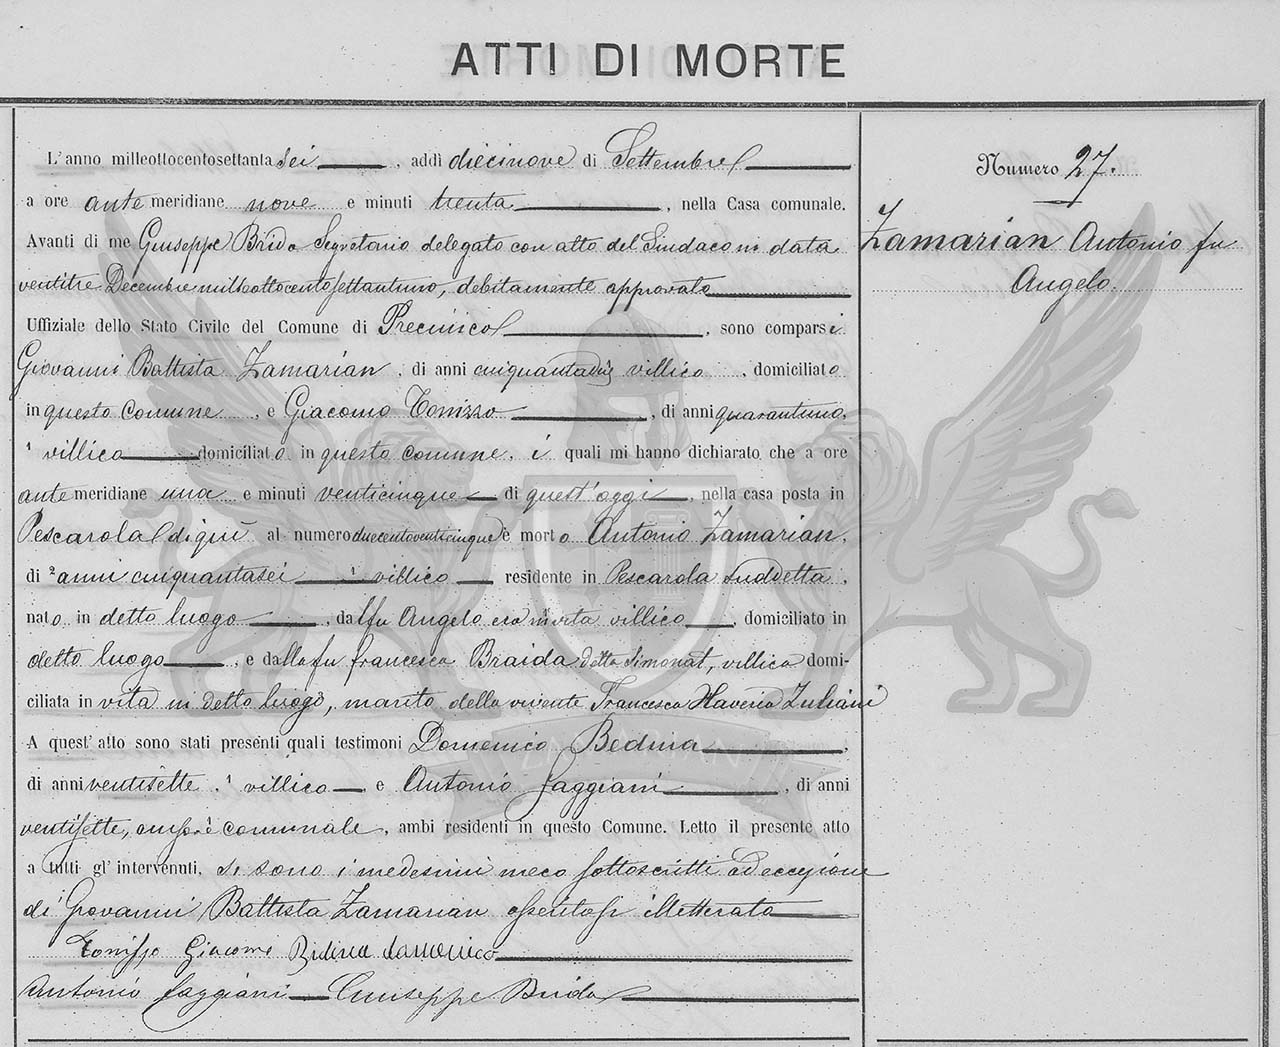 ATTI DI MORTE
Numero 27.
Zamarian Antonio fu
Angelo.
L'anno milleottocentosettanta sei, addì diecinove di Settembre
a ore antemeridiane nove e minuti trenta, nella Casa comunale.
Avanti di me Giuseppe Brida Segretario delegato con atto del Sindaco in data
ventitre Decembre milleottocentosettantuno, debitamente approvato
Uffiziale dello Stato Civile del Comune di Precenico, sono comparsi
Giovanni Battista Zamarian, di anni cinquantadue villico, domiciliato
in questo Comune, e Giacomo Tonizzo, di anni quarantuno,
villico domiciliato in questo comune, i quali mi hanno dichiarato che a ore
antemeridiane una e minuti venticinque di quest'oggi, nella casa posta in
Pescarola di qui al numero duecentoventicinque è morto Antonio Zamarian,
di anni cinquantasei villico residente in Pescarola suddetta,
nato in detto luogo, dal fu Angelo era in vita villico, domiciliato in
detto luogo, e dalla fu Francesca Braida detta Simonat, villica domi-
ciliata in vita in detto luogo, marito della vivente Francesca Zuliani
A quest'atto sono stati presenti quali testimoni Domenico Bedina,
di anni ventisette, villico e Antonio Faggiani, di anni
ventisette, comunale, ambi residenti in questo Comune. Letto il presente atto
a tutti gl'intervenuti, si sono i medesimi meco sottoscritti ad eccezione
di Giovanni Battista Zamarian essendosi illetterato
Tonisso Giacomo Bidina domenico
Antonio Faggiani Giuseppe Brida
ZAMARIAN